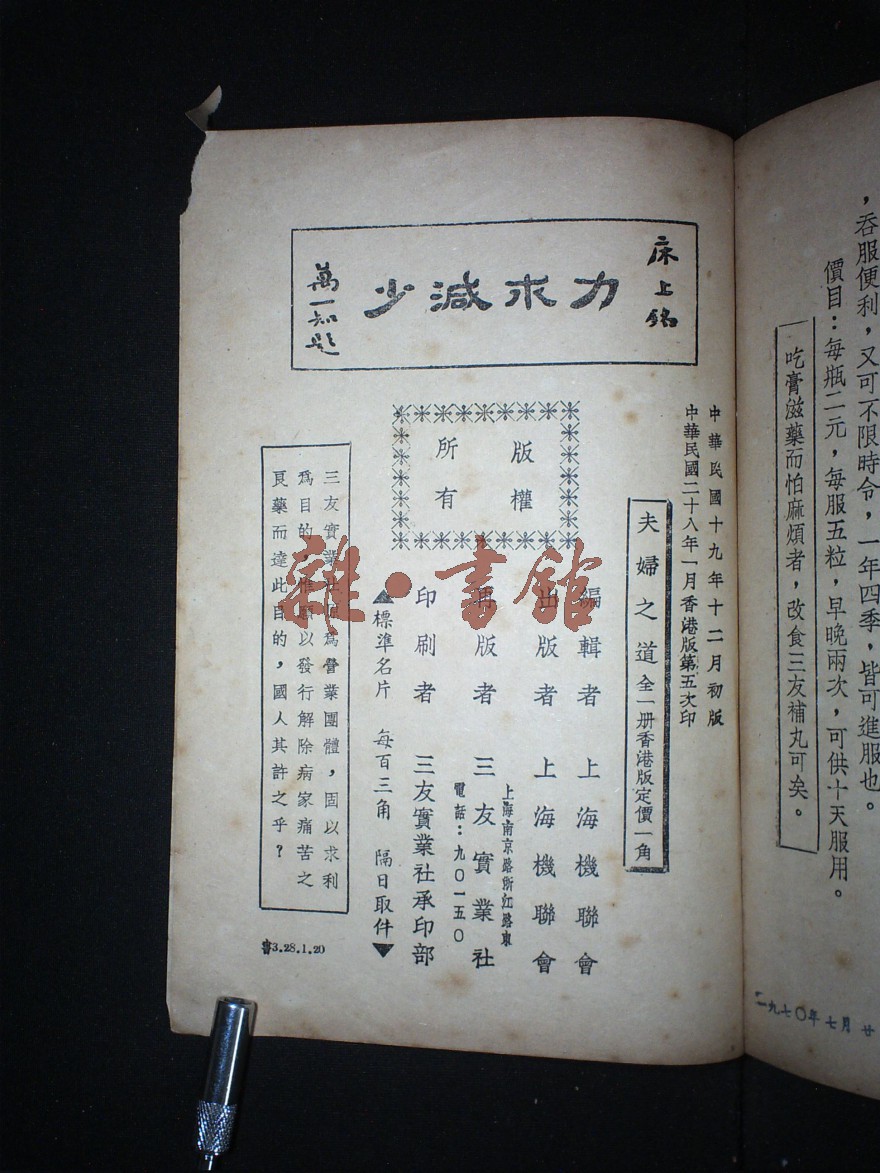 ，吞服便利，又可不限時令，一年四季，皆可進服也。
價目：每瓶二元，每服五粒，早晚兩次，可供十天服用。
吃膏滋藥而怕麻煩者，改食三友補丸可矣。
一九七〇年七月廿
床上銘
力求減少
萬一知題
中華民國十九年十二月初版
中華民國二十八年一月香港版第五次印
夫婦之道 全一册香港版定價一角
版權
所有
編輯者 上海機聯會
出版者 上海機聯會
再版者 三友實業社
上海南京路浙江路東
電話：九〇一五〇
印刷者 三友實業社承印部
▲標準名片 每百三角 隔日取件▼
三友實業社原爲營業團體，固以求利
爲目的，惟願以發行解除病家痛苦之
良藥而達此目的，國人其許之乎？
書3.28.1.20
雜·書館